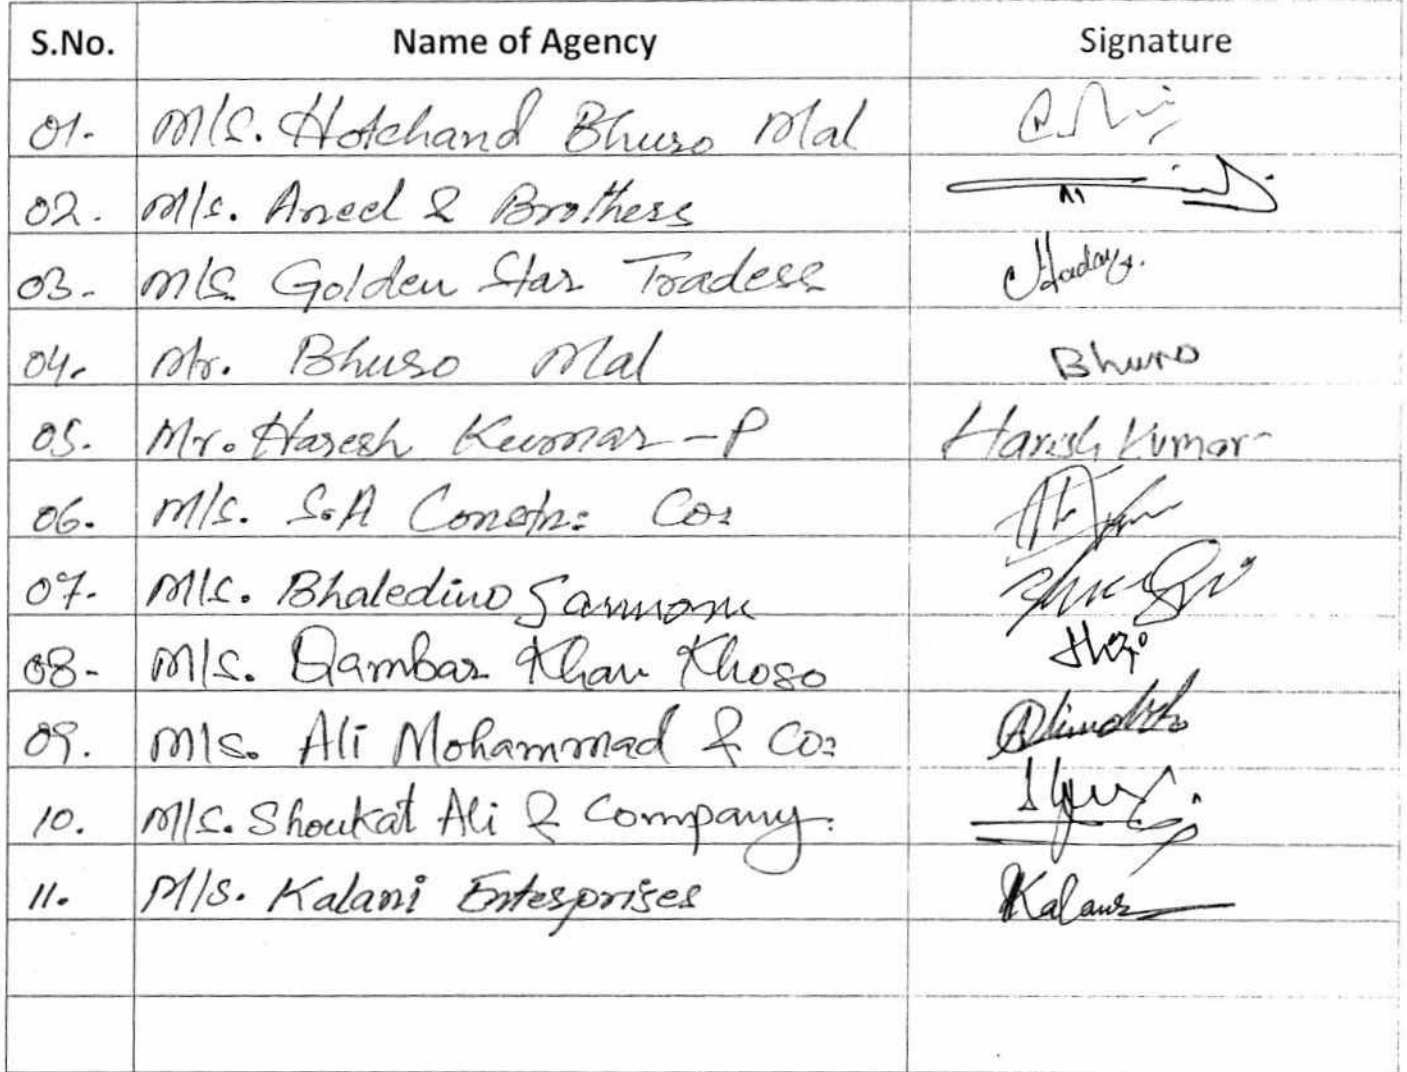 S.No. Name of Agency Signature
01. M/S. Hotchand Bhuro Mal
02. M/s. Aneel & Brothers
03. M/S Golden Star Traders
04. Mr. Bhuro Mal Bhuro
05. Mr. Haresh Kumar-P Harish Kumar
06. M/s. S.A Constn: Co:
07. M/s. Bhaledino
08- M/s. Qambar Khan Khoso
09. M/s. Ali Mohammad & Co:
10. M/s. Shoukat Ali & Company.
11. M/s. Kalani Enterprises